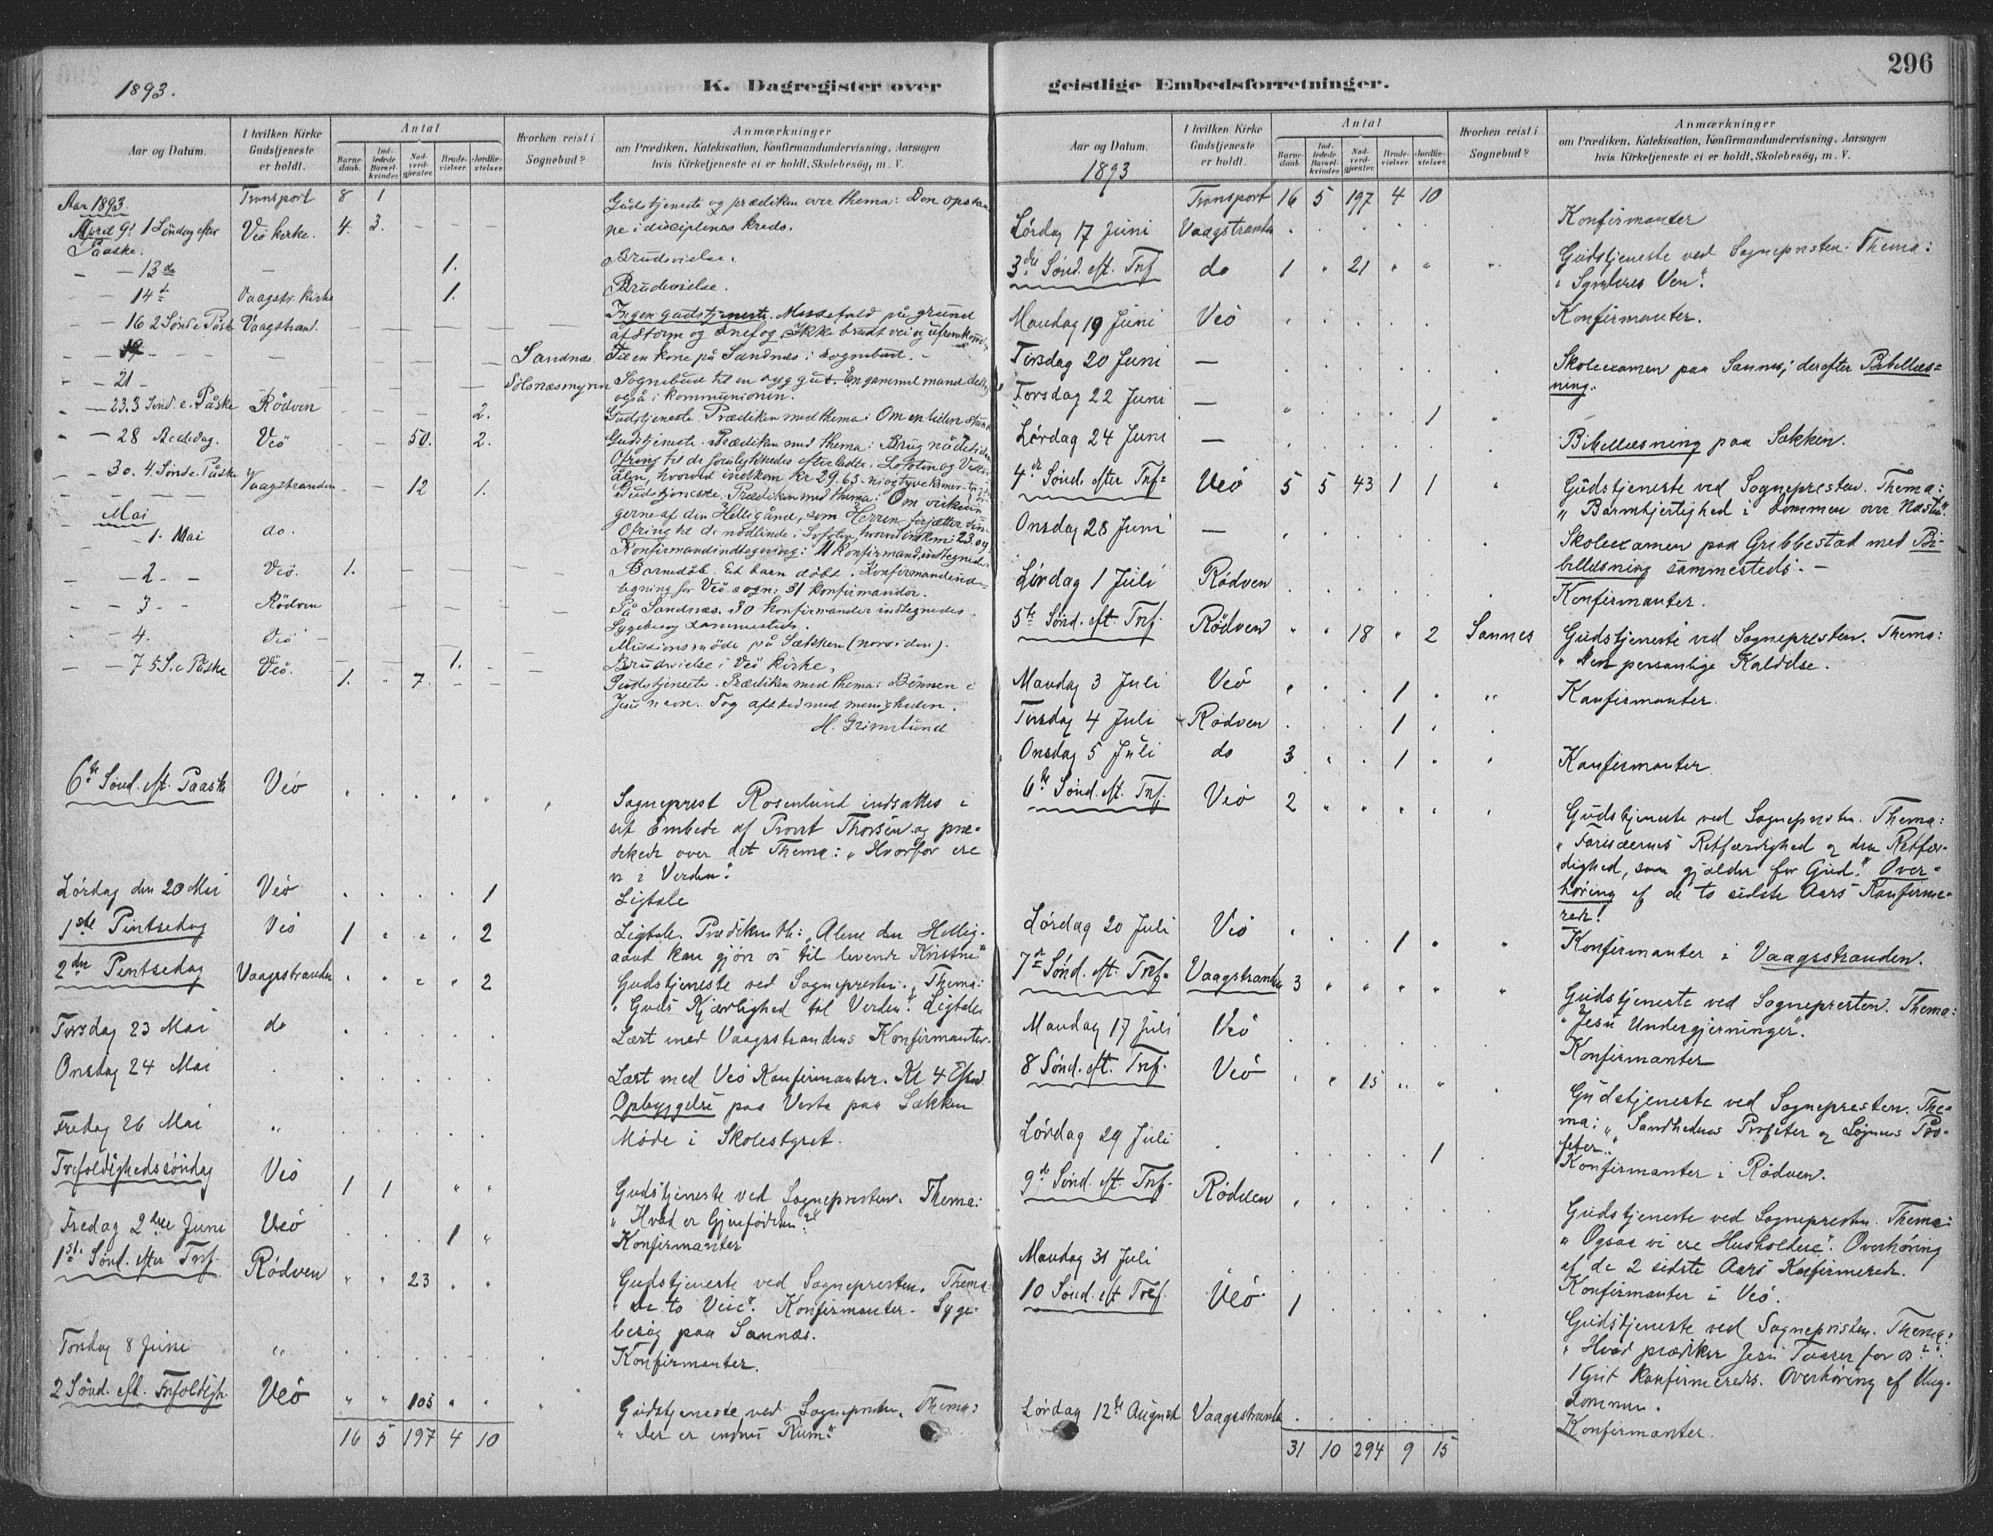 296
1893.
K. Dagregister over
geistlige Embedsforretninger.
Aar og Datum.
I hvilken Kirke Gudstjeneste er holdt.
Antal
Barnedaab.
Indledede Barselkvinder.
Nadverdgjester.
Brudevielser.
Jordfæstelser.
Hvorhen reist i Sognebud?
Anmærkninger
om Prædiken, Katekisation, Konfirmandundervisning, Aarsagen
hvis Kirketjeneste ei er holdt, Skolebesøg, m. V.
Aar 1893. Transport 8 1
Gudstjeneste og prædiken over thema: Den opstan
April 9d 1 Søndag efter Paaske. Veö kirke. 4 3. — — —
ne i disciplenes kreds.
— — 13de — 1. Brudevielse.
— — 14d Vaagstr. kirke 1. Brudevielse.
— — 16 2 Sönd e. Påske Vaagstrand.
Ingen gudstjeneste. Messefald på grund
af storm og snefog. Ikke brudt vei og
— — 19 — — Sandnes. Til en kone på Sandnæs i sognebud. —
— — 21 — Sölsnæsmyren Sognebud til en syg gut. En gammel mand deltog
også i kommunionen.
— — 23. 3 Sönd. e. Påske Rödven — — 2. Gudstjeneste. Prædiken med thema: Om en liden stund
— — 28 Bededag. Veö — — 50. 2. Gudstjeneste. Prædiken med thema: Brug nådetiden
Ofring til de forulykkedes efterladte i Lofoten og Vester
ålen, hvorved indkom kr 29.63
— — 30. 4. Sönd e. Påske Vaagstranden — 12 1. Gudstjeneste. Prædiken med thema: Om virknin
gerne af den Helligånd, som Herren forjætter sine
Mai
Ofring til de nødlidende i Lofoten, hvorved indkom: 23.09
— 1. Mai do. Konfirmandindtegning: 11 konfirmand. indtegnedes
— — 2 — Veö. 1. Barnedåb. Et barn döbt. Konfirmandind-
tegning for Veö sogn: 31 konfirmander.
— — 3 — Rödven På Sandnæs. 30 konfirmander indtegnedes.
Sygebesøg sammesteds.
— — 4. Veö — Missionsmöde på Sækken (norsiden).
1. Brudevielse i Veö kirke.
— — 7 5 S. e Påske Veö. 1. 7. Gudstjeneste. Prædiken med thema: Bönnen i
Jesu navn. Tog afsked med menigheden.
H. Grimelund
6te Sönd. eft. Paaske Veö
Sogneprest Rosenlund indsattes i
sit Embede af Provst Thorsen og præ-
dikede over det Thema: „Hvorfor ere
vi i Verden?"
Lørdag den 20 Mai Veö 1 Ligtale
1ste Pintsedag Veö 1 2 Ligtale. Prædiken th: „Alene den Hellig-
aand kan gjøre os til levende Kristne"
2den Pintsedag Vaagstranden 2 Gudstjeneste ved Sognepresten. Thema:
„Guds Kjærlighed til Verden". Ligtale
Tirsdag 23 Mai do Læst med Vaagstrandens Konfirmanter.
Onsdag 24 Mai Læst med Veö Konfirmanter. Kl 4 Eftmd.
Opbyggelse paa Vesta paa Sækken
Fredag 26 Mai „ Møde i Skolestyret.
Trefoldighedssöndag Veö 1 1 „ „ Gudstjeneste ved Sognepresten. Thema:
„Hvad er Gjenfødsen?"
Fredag 2den Juni Veö 1 „ Konfirmanter
1ste Sönd. efter Tref. Rödven „ „ 23 Gudstjeneste ved Sognepresten. Thema:
„De to Veie". Konfirmanter. Syge-
besøg paa Sannæs.
Torsdag 8 Juni „ Konfirmanter.
2 Sönd. eft. Trefoldigh. Veö „ „ 105 Gudstjeneste ved Sognepresten. Thema:
„Der er endnu Rum"
16 5 197 4 10
Aar og Datum.
1893
I hvilken Kirke Gudstjeneste er holdt.
Antal
Barnedaab.
Indledede Barselkvinder.
Nadverdgjester.
Brudevielser.
Jordfæstelser.
Hvorhen reist i Sognebud?
Anmærkninger
om Prædiken, Katekisation, Konfirmandundervisning, Aarsagen
hvis Kirketjeneste ei er holdt, Skolebesøg, m. V.
Transport 16 5 197 4 10
Lørdag 17 Juni Vaagstranden Konfirmanter
3die Sønd. eft. Tref do 1 „ 21 „ „ Gudstjeneste ved Sognepresten. Thema:
„Synderes Ven".
Mandag 19 Juni Veö Konfirmanter.
Tirsdag 20 Juni — Skoleexamen paa Sannes; derefter Bibellæs-
ning.
Torsdag 22 Juni — 1
Lørdag 24 Juni — Bibellæsning paa Sækken.
4de Sönd. efter Tref. Veö 5 5 43 1 1 Gudstjeneste ved Sognepresten. Thema:
„Barmhjertighed i Dommen over Næsten"
Onsdag 28 Juni — Skoleexamen paa Gribbestad med Bi-
bellæsning sammesteds. —
Lørdag 1 Juli Rødven Konfirmanter.
5te Sønd. eft. Tref. Rødven „ „ 18 „ 2 Sannes Gudstjeneste ved Sognepresten. Thema:
„Den personlige Kaldelse.
Mandag 3 Juli Veö 1 „ Konfirmanter.
Tirsdag 4 Juli Rødven 1
Onsdag 5 Juli do 3 1 Konfirmanter
6te Sønd. eft. Tref. Veö 2 Gudstjeneste ved Sognepresten. Thema:
„Farisæernes Retfærdighed og den Retfær-
dighed, som gjælder for Gud". Over-
høring af de to sidste Aars Konfirme-
rede!
Lørdag 20 Juli Veö 1 Konfirmanter i Vaagsstranden.
7de Sønd. eft. Tref. Vaagstranden 3 Gudstjeneste ved Sognepresten. Thema:
„Jesu Undergjerninger".
Mandag 17 Juli Veö Konfirmanter
8 Sønd. eft. Tref. Veö 15 Gudstjeneste ved Sognepresten. The-
ma: „Sandhedens Profeter og Løgnens Pro-
feter".
Lørdag 29 Juli 1 Konfirmanter i Rødven.
9de Sønd. eft. Tref. Rødven Gudstjeneste ved Sognepresten. Thema:
„Ogsaa vi ere Husholdere". Overhøring
af de 2 sidste Aars Konfirmerede.
Mandag 31 Juli Konfirmanter i Veö.
10 Sønd. eft Tref. Veö 1 Gudstjeneste ved Sognepresten. Thema:
„Hvad prædiker Jesu Taarer for os?".
Konfirmerede. Overhøring af Ung-
dommen.
Lørdag 12te August Vaagsstranden Konfirmanter.
31 10 294 9 15